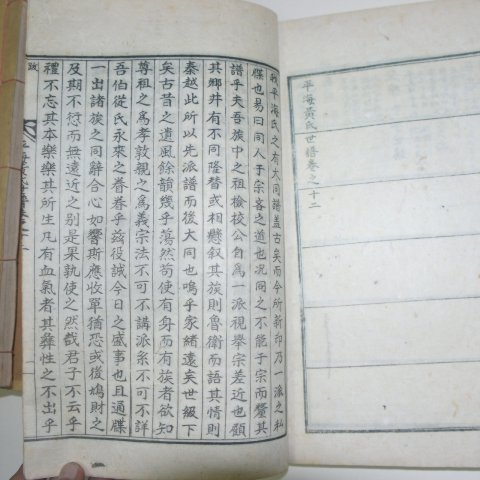 平海黃氏世譜卷之十二
我平海氏之有大同譜盖古矣而今所新印乃一派之私
牒也易曰同人于宗吝之道也况同之不能于宗而釐其
譜乎夫吾族中之祖檢校公自爲一派視擧宗差近也顧
其鄉井有不同隆替或相懸叙其族則魯衛而語其情則
秦越此所以先派譜而後大同也嗚乎家緒遠矣世級下
矣古昔之遺風餘韻幾乎蕩然苟使有身而有族者欲知
尊祖之爲孝敦親之爲義宗法不可不講派系不可不詳
吾伯從氏永來之眷眷乎玆役誠今日之盛事也且通牒
一出諸族之同辭合心如響斯應收單猶恐或後鳩財之
及期不愆而無遠近之别是果孰使之然哉君子不云乎
禮不忘其本樂樂其所生凡有血氣者其彝性之不出乎
跋